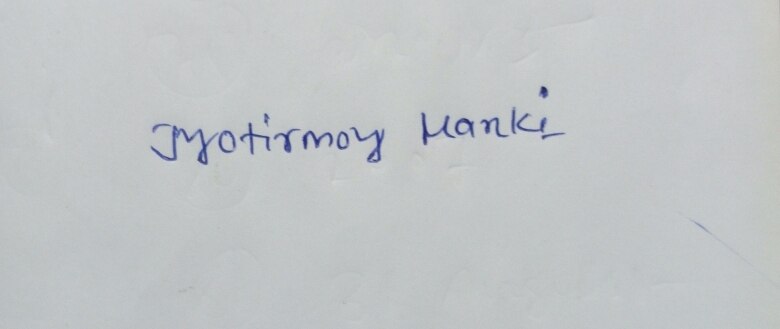 Jyotirmoy Manki